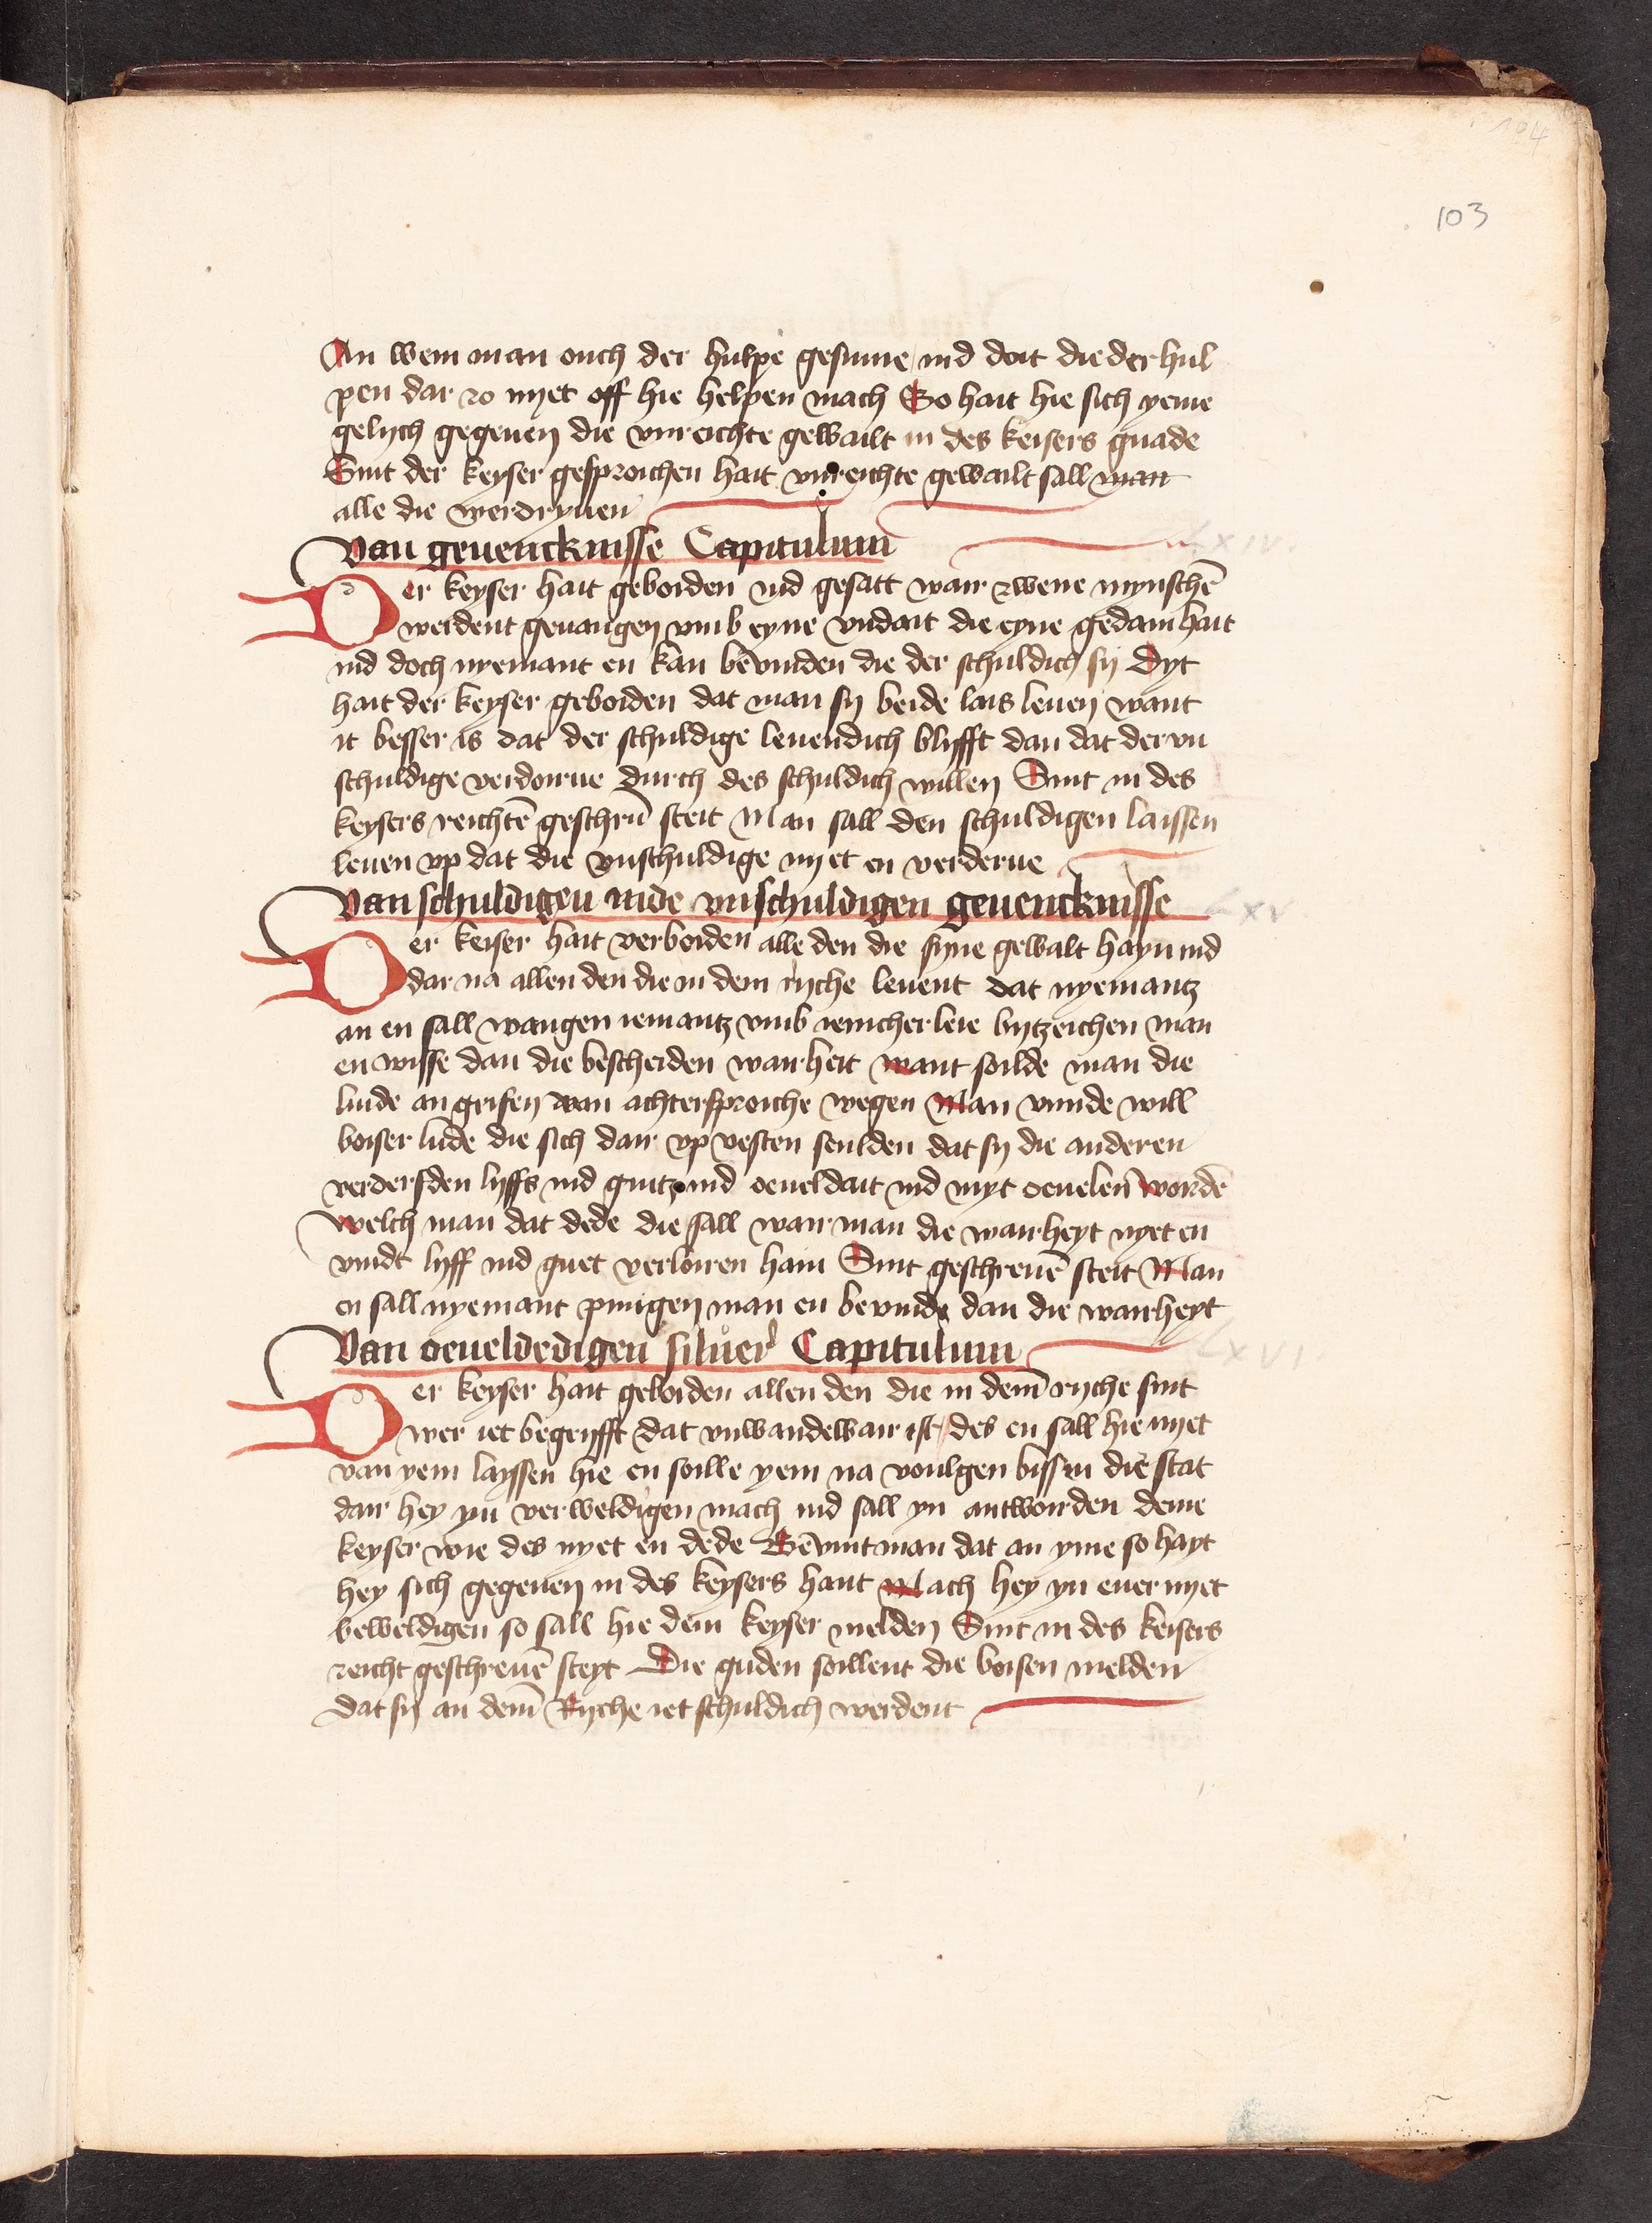 104
103
An wem man ouch der hulpe gesinne ind doit die der hul
pen dar zo nyet off hie helpen mach So hait hie sich yeme
gelych gegeuen die vnreichte gewailt in des keisers gnade
Sint der keyser gesproichen hait vnreichte gewailt sall man
alle die werdryuen
Van geuencknisse Capitulum
LXIV.
Der keyser hait geboiden ind gesatt wair zwene mynschē
werdent geuangen vmb eyne vndait die eyne gedain hait
ind doch nyemant en kan bevinden die der schuldich sij Dyt
hait der keyser geboiden dat man sy beide lais leuen want
it besser is dat der schuldige leuendich blyfft dan dat der vn
schuldige verdorue durch des schuldich willen Sint in des
keysers reichtē geschrū steit Man sall den schuldigen laissen
leuen vp dat die vnschuldige nyet en verderue
Van schuldigen inde vnschuldigen geuencknisse
LXV
Der keiser hait verboiden alle den die syne gewalt hayn ind
dar na allen den die in dem ryche leuent dat nyemantz
an en sall vangen iemantz vmb ienicherleie bytzeichen man
en wisse dan die bescheiden wairheit want soilde man die
luide an grifen van achtersproiche wegen Man vunde will
boiser lude die sich dair vp vesten seulden dat sy die anderen
verdersden lyffs ind guitz ind oeueldait ind myt oeuelen wordē
Welch man dat dede die sall wair man die wairheyt nyet en
vindt lyff ind guet verloiren hain Sint geschreuē steit Man
en sall nyemant pinigen man en bevinde dan die wairheyt
Van oeueldedigen siluer Capitulum
LXVI
Der keyser hait geboiden allen den die in dem ryche sint
wer iet begryfft dat vnwandelbair ist des en sall hie nyet
van yem layssen hie en soille yem na voulgen biss in die stat
dair hey yn verweldigen mach ind sall yn antworden deme
keyser wie des nyet en dede Bevint man dat an yme so hayt
hey sich gegeuen in des keysers hant Mach hey yn euer nyet
beweldigen so sall hie dem keyser melden Sint in des keisers
reicht geschreuē steyt Die guden soillent die boisen melden
dat sy an dem Ryche iet schuldich werdent